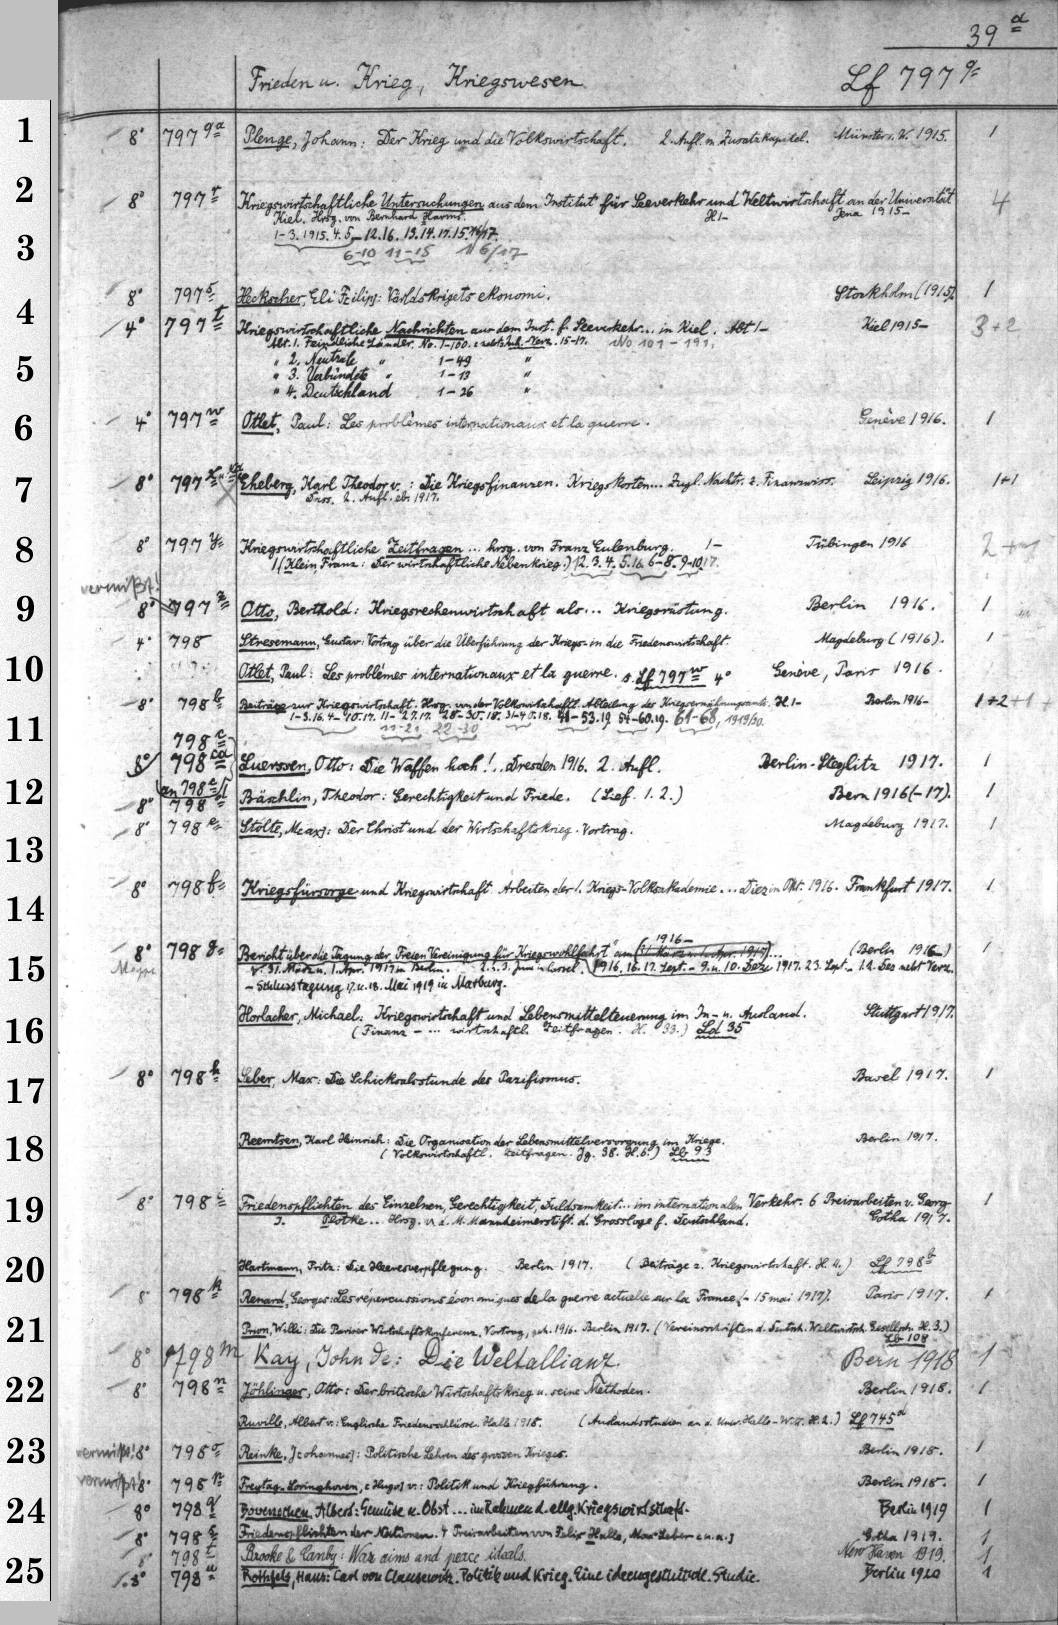 39 a
Frieden u. Krieg, Kriegswesen Lf 797 q
1
8° 797 qa Plenge, Johann: Der Krieg und die Volkswirtschaft. 2. Aufl. m. Zusatzkapitel. Münster i. W. 1915. 1
2
8° 797 r Kriegswirtschaftliche Untersuchungen aus dem Institut für Seeverkehr und Weltwirtschaft an der Universität 4
Kiel. Hrsg. von Bernhard Harms. H 1- Jena 1915-
1-3. 1915. 4. 5.-12.16. 13.14.17.15.16/17.
3
6-10 11-15 16/17
8° 797 s Heckscher, Eli F[ilip]: Världskrigets ekonomi. Stockholm (1915). 1
4
4° 797 t Kriegswirtschaftliche Nachrichten aus dem Inst. f. Seeverkehr... in Kiel. Abt 1- Kiel 1915- 3+2
Abt. 1. Feindliche Länder. No. 1-100. nebst Inh.-Verz. 15-17. No 101-191.
5
" 2. Neutrale " 1-49 "
" 3. Verbündete " 1-13 "
" 4. Deutschland 1-26 "
6
4° 797 w Otlet, Paul: Les problèmes internationaux et la guerre. Genève 1916. 1
7
8° 797 x Eheberg, Karl Theodor v.: Die Kriegsfinanzen. Kriegskosten... Zugl. Nachtr. z. Finanzwiss. Leipzig 1916. 1+1
Dass. 2. Aufl. eb. 1917.
8
8° 797 y Kriegswirtschaftliche Zeitfragen ... hrsg. von Franz Eulenburg. 1- Tübingen 1916
1 (Klein, Franz: Der wirtschaftliche Nebenkrieg.) 2.3.4. 5.16. 6-8. 9-10.17.
vermißt!
9
8° 797 z Otto, Berthold: Kriegsrechenwirtschaft als... Kriegsrüstung. Berlin 1916. 1
4° 798 Stresemann, Gustav: Vortrag über die Überführung der Kriegs- in die Friedenswirtschaft. Magdeburg (1916). 1
10
Otlet, Paul: Les problèmes internationaux et la guerre. s. Lf 797 w 4° Genève, Paris 1916.
8° 798 b Beiträge zur Kriegswirtschaft. Hrsg. von der Volkswirtschaftl. Abteilung des Kriegsernährungsamts. H. 1- Berlin 1916- 1+2+1+
1-3.16. 4-10.17. 11-27.17. 28-30.18. 31-40.18. 41-53.19 54-60.19. 61-68, 1919/20.
11
11-21 22-30
798 c
8° 798 ca Luerssen, Otto: Die Waffen hoch!.. Dresden 1916. 2. Aufl. Berlin-Steglitz 1917. 1
12
an 798 e/1
8° 798 Bäschlin, Theodor: Gerechtigkeit und Friede. (Lief. 1. 2.) Bern 1916(-17). 1
8° 798 e Stolte, M[ax]: Der Christ und der Wirtschaftskrieg. Vortrag. Magdeburg 1917. 1
13
14
8° 798 f Kriegsfürsorge und Kriegswirtschaft. Arbeiten der 1. Kriegs-Volksakademie... Diez im Okt. 1916. Frankfurt 1917. 1
15
1916-
8° 798 g Bericht über die Tagung der Freien Vereinigung für Kriegswohlfahrt am (31. März u. 1. Apr. 1917)... (Berlin 1916-) 1
v. 31. März u. 1. Apr. 1917 in Berlin. 2. u. 3. Juni in Cassel. 1916, 16. 17. Sept.- 9. u. 10. Dez. 1917. 23. Sept.- 12. Des nebst Verz.
- Schlusstagung 17. u. 18. Mai 1919 in Marburg.
Horlacher, Michael: Kriegswirtschaft und Lebensmittelteuerung im In- u. Ausland. Stuttgart 1917.
16
(Finanz- ... wirtschaftl. Zeitfragen. H. 33.) Ld 35
17
8° 798 h Seber, Max: Die Schicksalsstunde des Pazifismus. Basel 1917. 1
18
Reemtsen, Karl Heinrich: Die Organisation der Lebensmittelversorgung im Kriege. Berlin 1917.
(Volkswirtschaftl. Zeitfragen. Jg. 38. H. 6.) Lb 93
19
8° 798 i Friedenspflichten des Einzelnen, Gerechtigkeit, Duldsamkeit... im internationalen Verkehr. 6 Preisarbeiten v. Georg 1
J. Plotke... Hrsg. v. d. M. Mannheimerstift. d. Grossloge f. Deutschland. Gotha 1917.
20
Hartmann, Fritz: Die Heeresverpflegung. Berlin 1917. (Beiträge z. Kriegswirtschaft. H. 4.) Lf 798 b
8° 798 k Renard, Georges: Les répercussions économiques de la guerre actuelle sur la France (- 15 mai 1917). Paris 1917. 1
21
Prion, Willi: Die Pariser Wirtschaftskonferenz, Vortrag, geh. 1916. Berlin 1917. (Vereinsschriften d. Deutsch. Weltwirtsch. Gesellsch. H. 3.)
Lb 108
8° 798 m Kay, John de: Die Weltallianz. Bern 1918 1
22
8° 798 n Jöhlinger, Otto: Der britische Wirtschaftskrieg u. seine Methoden. Berlin 1918. 1
Ruville, Albert v.: Englische Friedensschlüsse. Halle 1918. (Auslandsstudien an d. Univ. Halle-W. H. 2.) Lf 745 d
23
vermißt! 8° 798 o Reinke, J[ohannes]: Politische Lehren des grossen Krieges. Berlin 1918. 1
vermißt 8° 798 p Freytag-Loringhoven, [Hugo] v.: Politik und Kriegführung. Berlin 1918. 1
24
8° 798 q Bovenschen, Albert: Gemüse u. Obst... im Rahmen d. allg. Kriegswirtschaft. Berlin 1919 1
8° 798 s Friedenspflichten der Nationen. 4 Preisarbeiten von Felix Halle, Max Seber [u. a.] Gotha 1919. 1
8° 798 t Brooke & Canby: War aims and peace ideals. New Haven 1919. 1
25
8° 798 u Rothfels, Hans: Carl von Clausewitz. Politik und Krieg. Eine ideengeschichtl. Studie. Berlin 1920 1